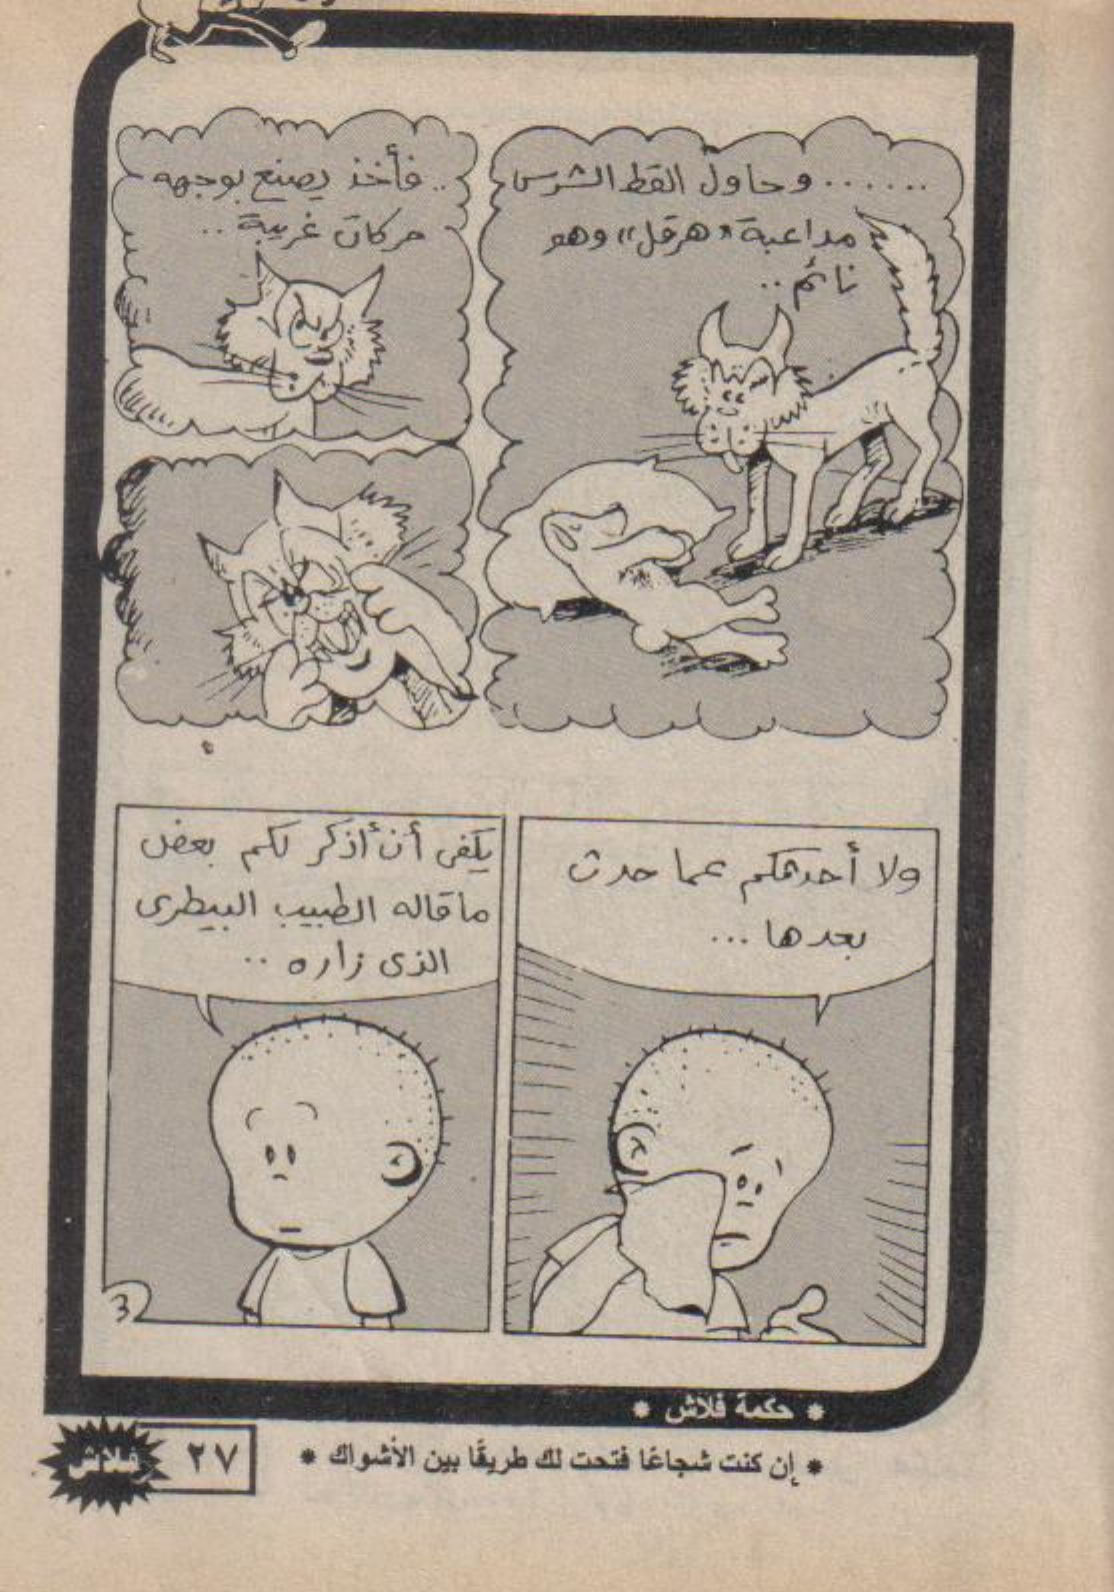 ....... وحاول القط الشرس
مداعبة «هرقل» وهو
نائم ..
.. فأخذ يصنع بوجهه
حركات غريبة ..
ولا أحدثكم عما حدث
بعدها ...
يكفى أن أذكر لكم بعض
ما قاله الطبيب البيطرى
الذى زاره ..
3
* حكمة فلاش *
* إن كنت شجاعًا فتحت لك طريقًا بين الأشواك *
٢٧
فلاش